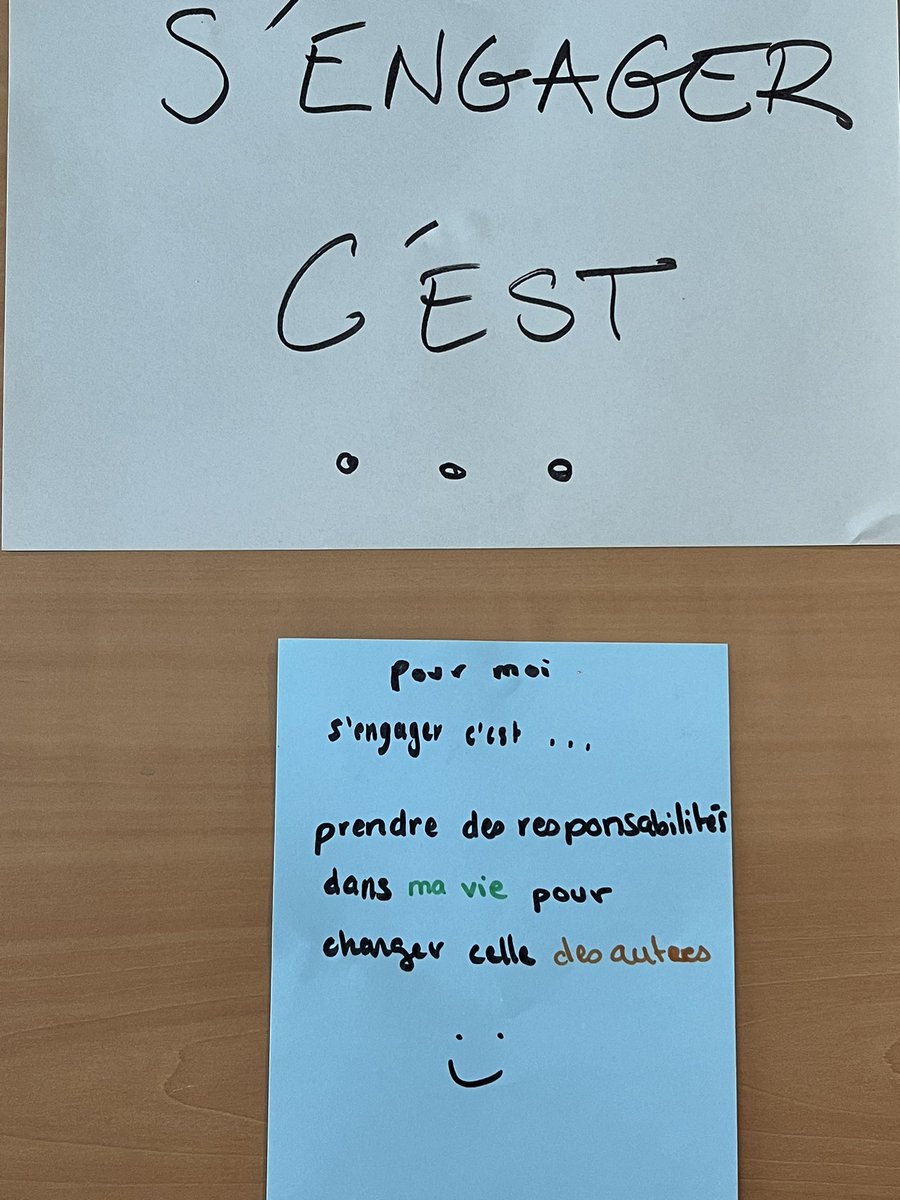 S'ENGAGER
C'EST
...
pour moi
s'engager c'est ...
prendre des responsabilités
dans ma vie pour
changer celle des autres